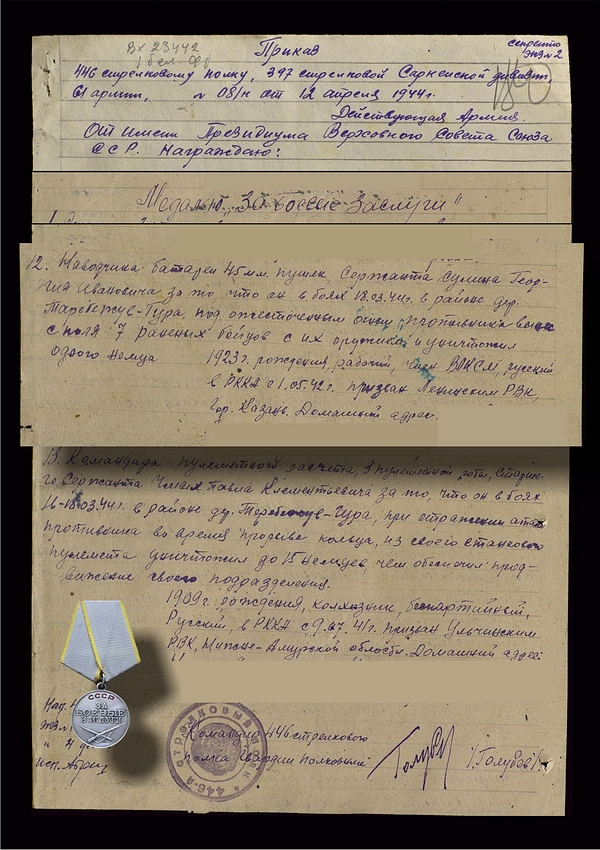 Вх 23442
Приказ
секретно
экз. № 2
446 стрелковому полку, 397 стрелковой Сарненской дивизии,
61 армии, № 08/н от 12 апреля 1944г.
Действующая Армия.
От имени Президиума Верховного Совета Союза
ССР. Награждаю:
Медалью „За боевые Заслуги"
12. Наводчика батареи 45 мм. пушек, Сержанта Сулина Геор-
гия Ивановича за то, что он в боях 18.03.44г. в районе дер.
под ожесточенным огнем противника вынес
с поля 7 раненых бойцов с их оружием и уничтожил
одного немца
1923г. рождения, рабочий, член ВЛКСМ, русский
в РККА с 1.05.42г. призван Ленинским РВК,
гор. Казань. Домашний адрес.
13. Командира пулеметного расчета, 3 пулеметной роты, Старше-
го Сержанта Павла Клементьевича за то, что он в боях
16-18.03.44г. в районе др. при отражении атак
противника во время прорыва кольца, из своего станкового
пулемета уничтожил до 15 немцев, чем обеспечил прод-
вижение своего подразделения.
1909г. рождения, колхозник, беспартийный,
Русский, в РККА с 9.07.41г. призван Ульчинским
РВК, Нижне-Амурской области. Домашний адрес:
СССР
ЗА
БОЕВЫЕ
ЗАСЛУГИ
Командир 446 стрелкового
полка гвардии полковник
/Голубев/